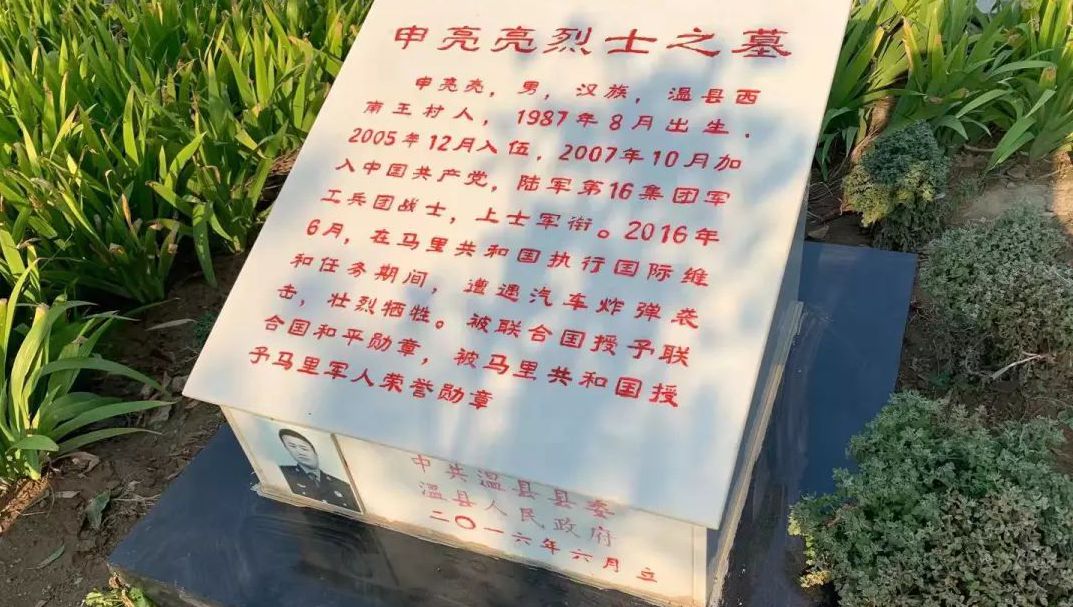 申亮亮烈士之墓
申亮亮，男，汉族，温县西
南王村人，1987年8月出生．
2005年12月入伍，2007年10月加
入中国共产党，陆军第16集团军
工兵团战士，上士军衔。2016年
6月，在马里共和国执行国际维
和任务期间，遭遇汽车炸弹袭
击，壮烈牺牲。被联合国授予联
合国和平勋章，被马里共和国授
予马里军人荣誉勋章
中共温县县委
温县人民政府
二〇一六年六月立